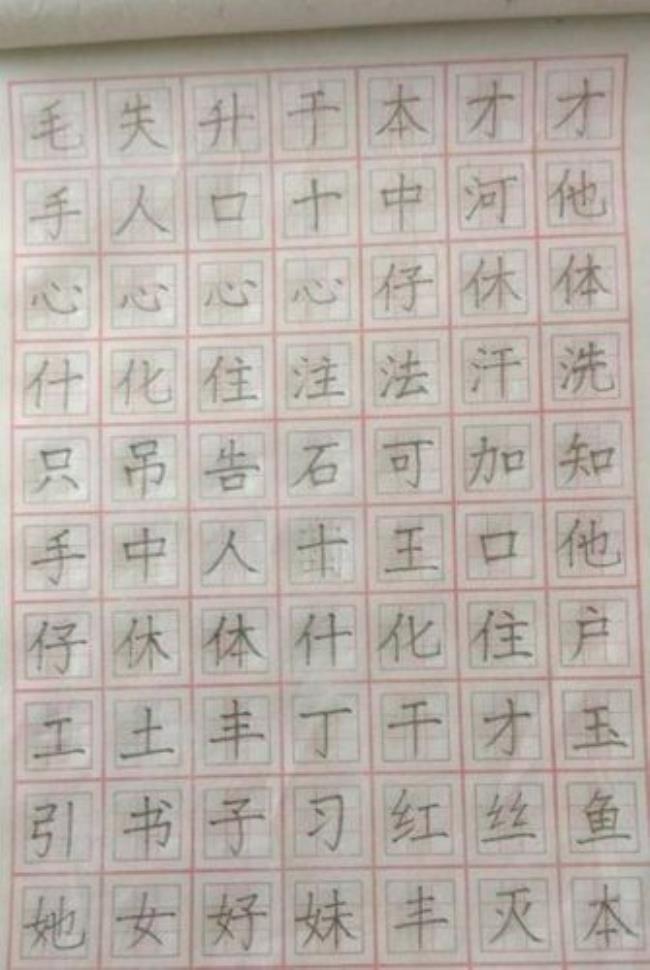 毛失升千本才才
手人口十中河他
心心心心仔休体
什化住注法汗洗
只吊告石可加知
手中人十王口他
仔休体什化住户
工土丰丁干才玉
引书子习红丝鱼
她女好妹丰灭本